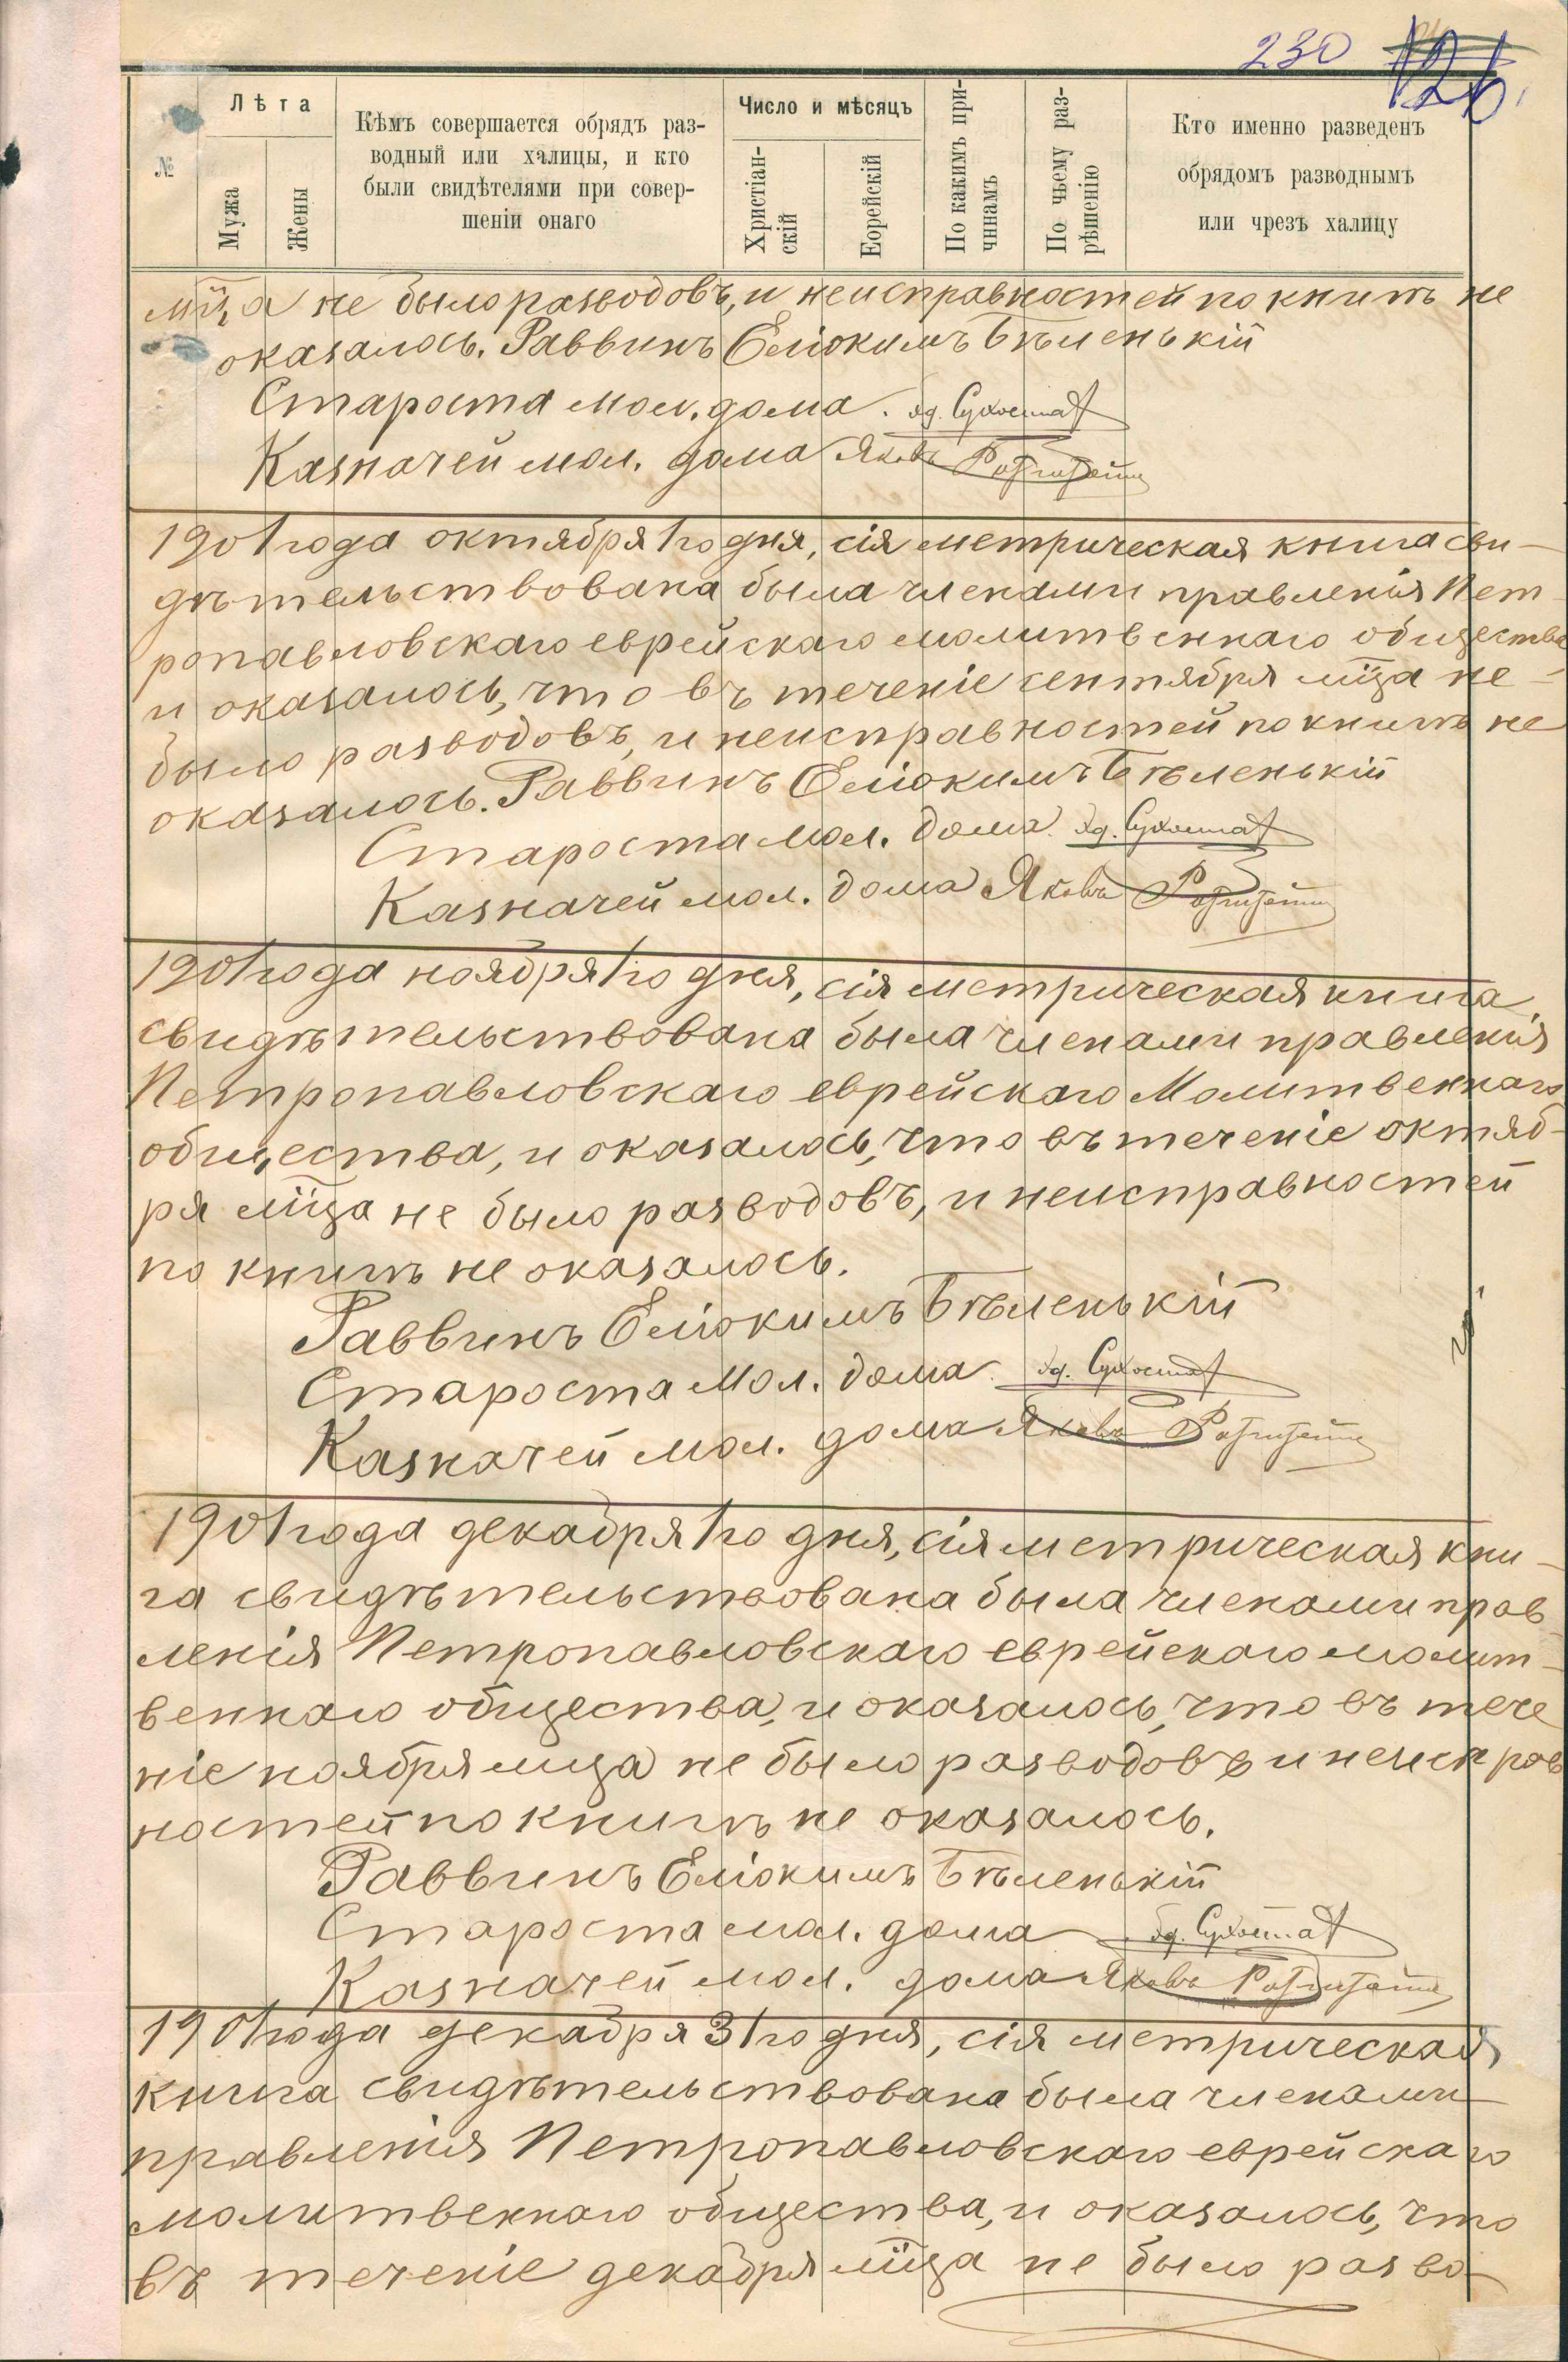 230 126
№
Лѣта
Мужа
Жены
Кѣмъ совершается обрядъ раз-
водный или халицы, и кто
были свидѣтелями при совер-
шеніи онаго
Число и мѣсяцъ
Христіан-
скій
Еорейскій
По какимъ при-
чинамъ
По чьему раз-
рѣшенію
Кто именно разведенъ
обрядомъ разводнымъ
или чрезъ халицу
мца не было разводовъ, и неисправностей по книгѣ не
оказалось. Раввинъ Еліокимъ Бѣленькій
Староста мол. дома.
Казначей мол. дома Яковъ
1901 года октября 1го дня, сія метрическая книга сви-
дѣтельствована была членами правленія Пет-
ропавловскаго еврейскаго молитвеннаго общества
и оказалось, что въ теченіе сентября мца не-
было разводовъ, и неисправностей по книгѣ не
оказалось. Раввинъ Еліокимъ Бѣленькій
Староста мол. дома.
Казначей мол. дома Яковъ
1901 года ноября 1го дня, сія метрическая книга
свидѣтельствована была членами правленія
Петропавловскаго еврейскаго Молитвеннаго
общества, и оказалось, что въ теченіе октяб-
ря мца не было разводовъ, и неисправностей
по книгѣ не оказалось.
Раввинъ Еліокимъ Бѣленькій
Староста мол. дома
Казначей мол. дома Яковъ
1901 года декабря 1го дня, сія метрическая кни-
га свидѣтельствована была членами прав
ленія Петропавловскаго еврейскаго молит-
веннаго общества, и оказалось, что въ тече
ніе ноября мца не было разводовъ и неисправ
ностей по книгѣ не оказалось.
Раввинъ Еліокимъ Бѣленькій
Староста мол. дома
Казначей мол. дома Яковъ
1901 года декабря 31го дня, сія метрическая
книга свидѣтельствована была членами
правленія Петропавловскаго еврейскаго
молитвеннаго общества, и оказалось, что
въ теченіе декабря мца не было разво-